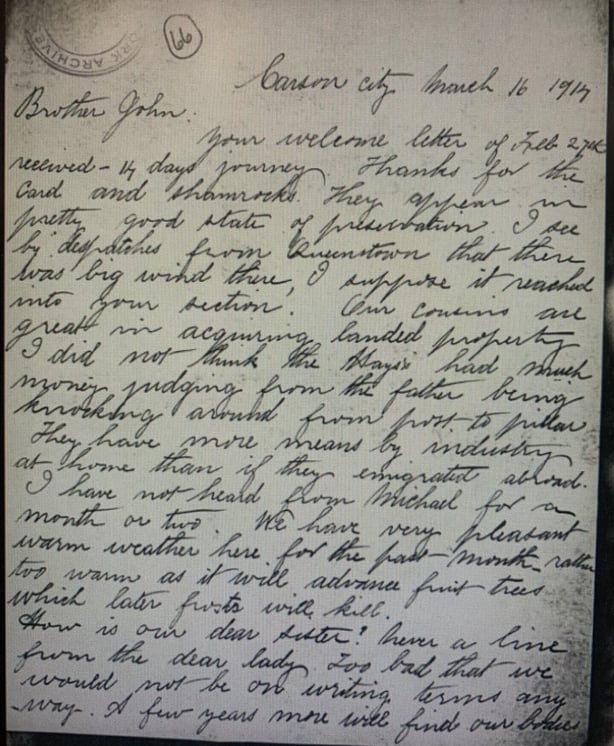 ORK ARCHIVE
66
Carson city March 16 1914
Brother John.
Your welcome letter of Feb 27th
received - 14 days journey Thanks for the
Card and shamrocks. They appear in
pretty good state of preservation. I see
by despatches from Queenstown that there
was big wind there, I suppose it reached
into your section. Our cousins are
great in acquiring landed property
I did not think the Hays's had much
money judging from the father being
knocking around from post to pillar
They have more means by industry
at home than if they emigrated abroad.
I have not heard from Michael for a
month or two. We have very pleasant
warm weather here for the past month - rather
too warm as it will advance fruit trees
which later frosts will kill.
How is our dear sister? never a line
from the dear lady. Too bad that we
would not be on writing terms any
-way. A few years more will find our bodies